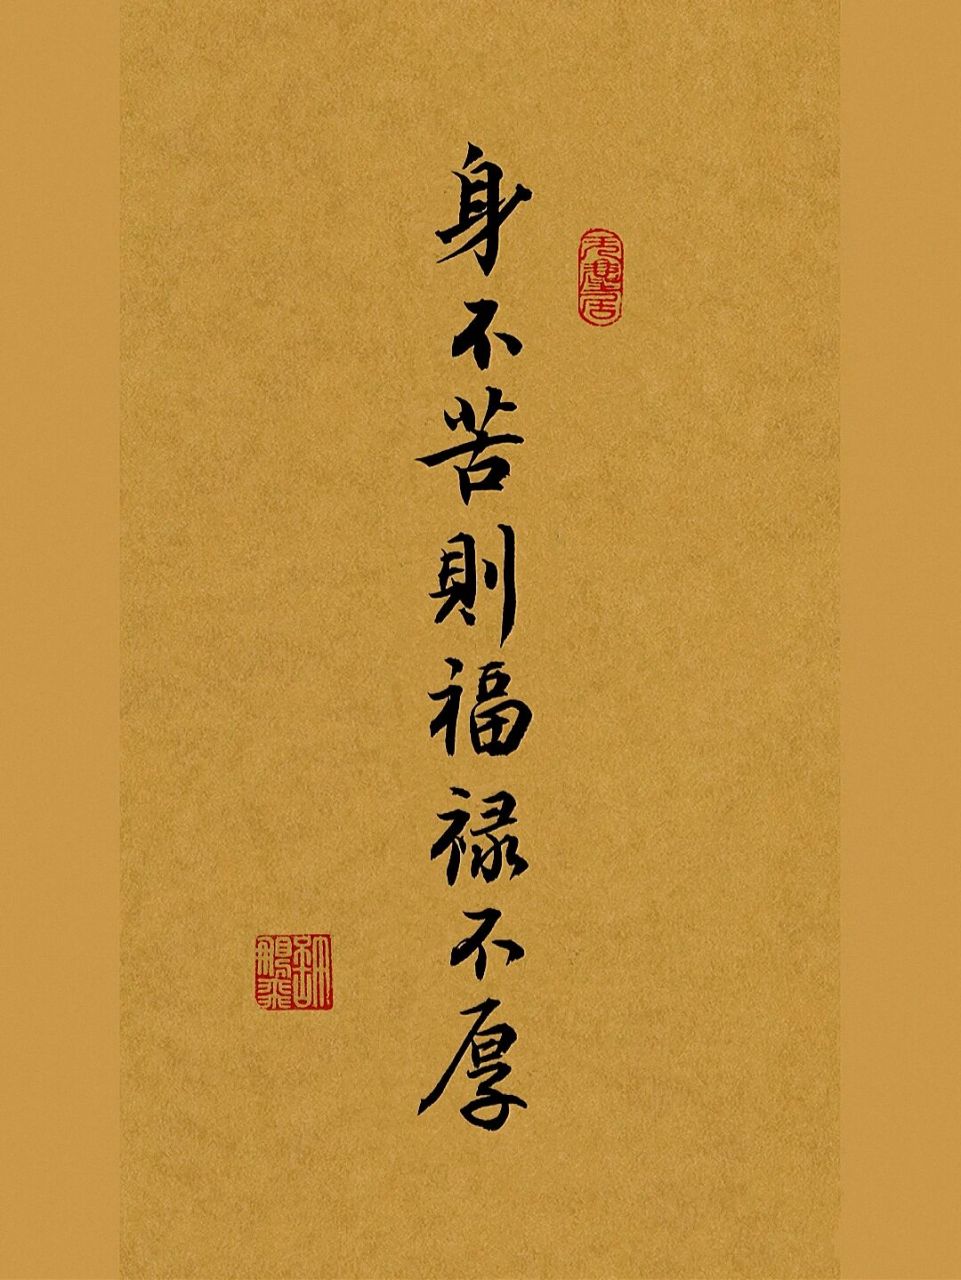 身不苦則福禄不厚